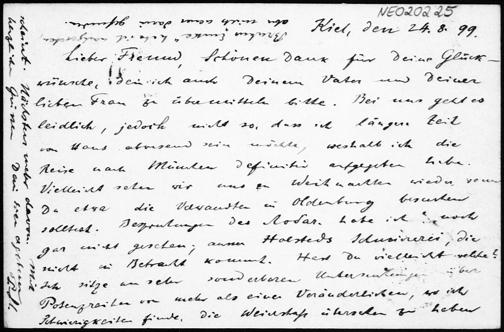 NE020225
Kiel, den 24.8.99.
Lieber Freund, Schönen Dank für Deine Glück-
wünsche, den ich auch Deinem Vater und Deiner
lieben Frau zu übermitteln bitte. Bei uns geht es
leidlich, jedoch nicht so, dass ich längere Zeit
von Haus abwesend sein möchte, weshalb ich die
Reise nach München definitiv aufgegeben habe.
Vielleicht sehen wir uns zu Weihnachten wieder, wenn
Du etwa die Verwandten in Oldenburg besuchen
solltest. Besprechungen des habe ich noch
gar nicht gesehen; ausser Halsteds Schweinerei, die
nicht in Betracht kommt. Hast Du vielleicht welche?
Ich sitze an sehr sonderbaren Untersuchungen über
Potenzreihen von mehr als einer Veränderlichen, wo ich
Schwierigkeiten finde, die Weierstrass übersehen zu haben
scheint. Nächstens mehr davon. Mit
herzlichen Grüssen Dein